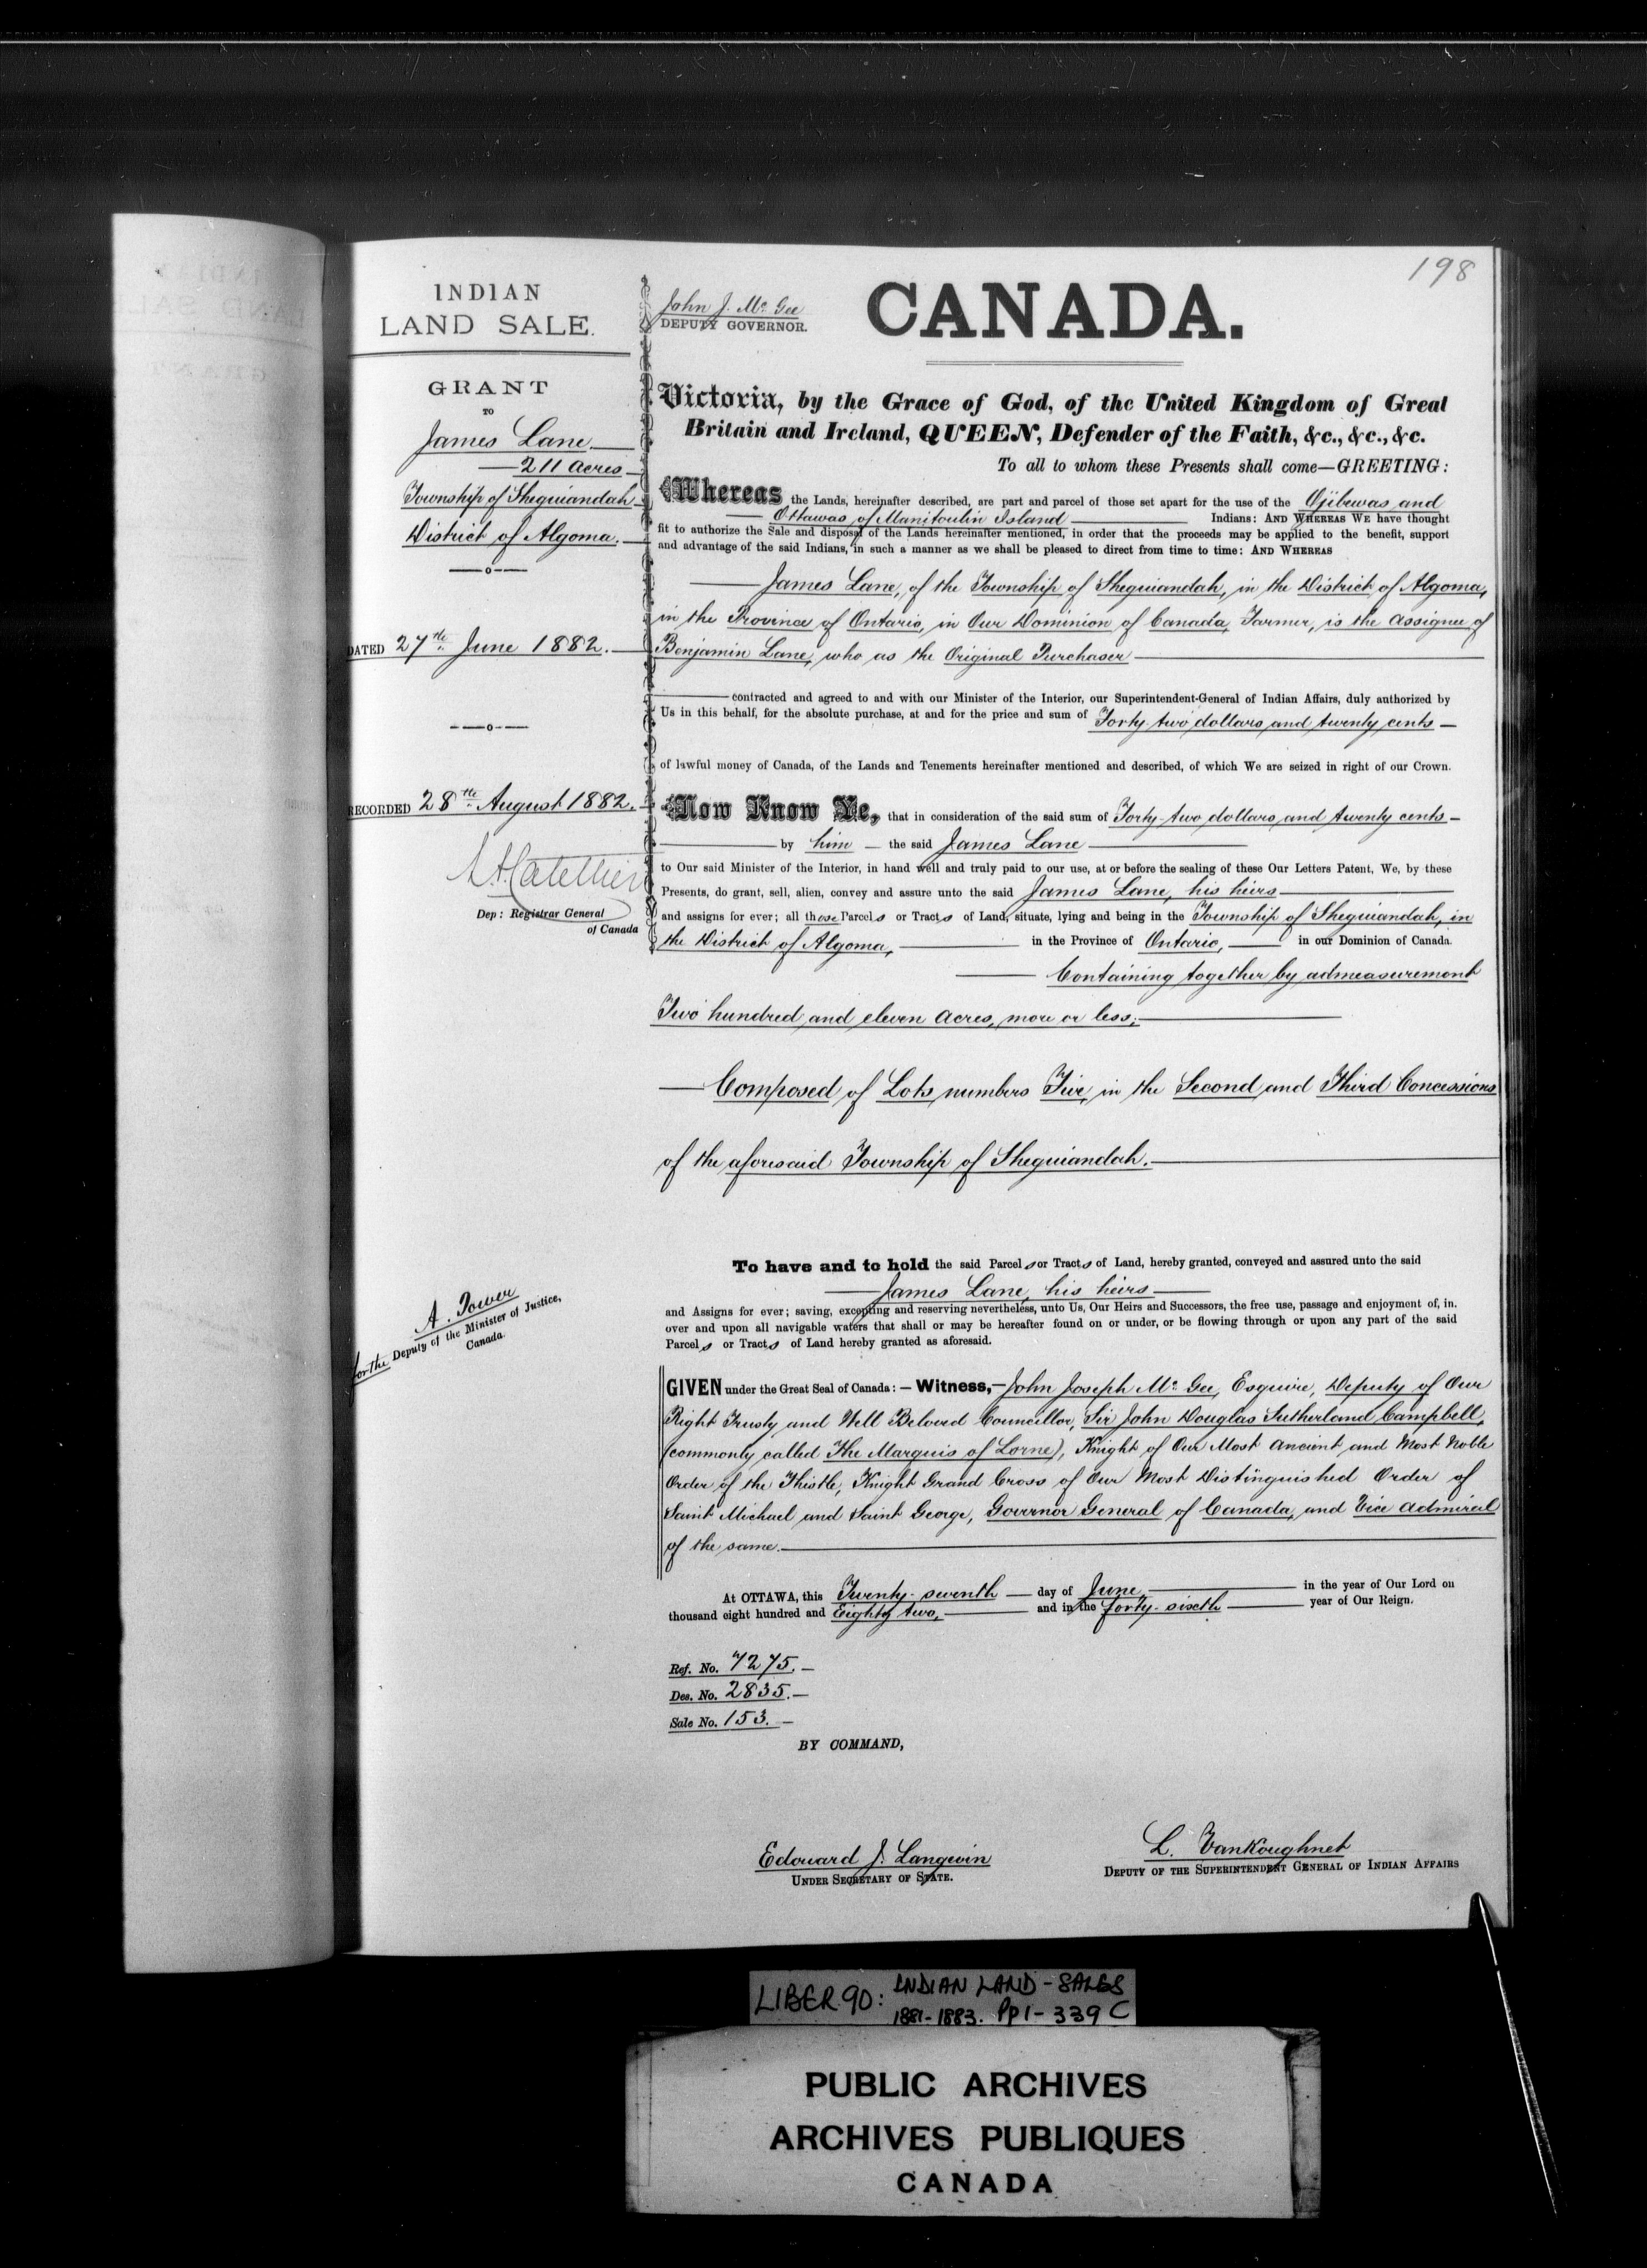 198
INDIAN
LAND SALE.
GRANT
TO
James Lane
211 Acres
Township of Sheguiandah
District of Algoma.
DATED 27th June 1882.
RECORDED 28th August 1882.
Dep: Registrar General
of Canada
A. Power
for the Deputy of the Minister of Justice,
Canada.
John J. Mc Gee
DEPUTY GOVERNOR.
CANADA.
Victoria, by the Grace of God, of the United Kingdom of Great
Britain and Ireland, QUEEN, Defender of the Faith, &c., &c., &c.
To all to whom these Presents shall come—GREETING:
Whereas the Lands, hereinafter described, are part and parcel of those set apart for the use of the Ojibewas and
Ottawas of Manitoulin Island Indians: AND WHEREAS WE have thought
fit to authorize the Sale and disposal of the Lands hereinafter mentioned, in order that the proceeds may be applied to the benefit, support
and advantage of the said Indians, in such a manner as we shall be pleased to direct from time to time: AND WHEREAS
James Lane, of the Township of Sheguiandah, in the District of Algoma,
in the Province of Ontario, in Our Dominion of Canada, Farmer, is the assignee of
Benjamin Lane, who as the Original Purchaser
contracted and agreed to and with our Minister of the Interior, our Superintendent-General of Indian Affairs, duly authorized by
Us in this behalf, for the absolute purchase, at and for the price and sum of Forty two dollars and twenty cents
of lawful money of Canada, of the Lands and Tenements hereinafter mentioned and described, of which We are seized in right of our Crown.
Now Know Ye, that in consideration of the said sum of Forty-two dollars and twenty cents
by him the said James Lane
to Our said Minister of the Interior, in hand well and truly paid to our use, at or before the sealing of these Our Letters Patent, We, by these
Presents, do grant, sell, alien, convey and assure unto the said James Lane, his heirs
and assigns for ever; all those Parcels or Tracts of Land, situate, lying and being in the Township of Sheguiandah, in
the District of Algoma, in the Province of Ontario, in our Dominion of Canada.
Containing together by admeasurement
Two hundred and eleven acres, more or less;
Composed of Lots numbers Five, in the Second and Third Concessions
of the aforesaid Township of Sheguiandah.
To have and to hold the said Parcels or Tracts of Land, hereby granted, conveyed and assured unto the said
James Lane, his heirs
and Assigns for ever; saving, excepting and reserving nevertheless, unto Us, Our Heirs and Successors, the free use, passage and enjoyment of, in,
over and upon all navigable waters that shall or may be hereafter found on or under, or be flowing through or upon any part of the said
Parcels or Tracts of Land hereby granted as aforesaid.
GIVEN under the Great Seal of Canada:—Witness,—John Joseph Mc Gee, Esquire, Deputy of Our
Right Trusty and Well Beloved Councillor, Sir John Douglas Sutherland Campbell,
(commonly called The Marquis of Lorne), Knight of Our Most Ancient and Most Noble
Order of the Thistle, Knight Grand Cross of Our Most Distinguished Order of
Saint Michael and Saint George, Governor General of Canada, and Vice Admiral
of the same.
At OTTAWA, this Twenty-seventh day of June, in the year of Our Lord on
thousand eight hundred and Eighty two, and in the forty-sixth year of Our Reign.
Ref. No. 7275.
Des. No. 2835.
Sale No. 153.
BY COMMAND,
Edouard J. Langevin
UNDER SECRETARY OF STATE.
L. VanKoughnet
DEPUTY OF THE SUPERINTENDENT GENERAL OF INDIAN AFFAIRS
LIBER 90: INDIAN LAND-SALES
1881-1883. Pp 1-339 C
PUBLIC ARCHIVES
ARCHIVES PUBLIQUES
CANADA